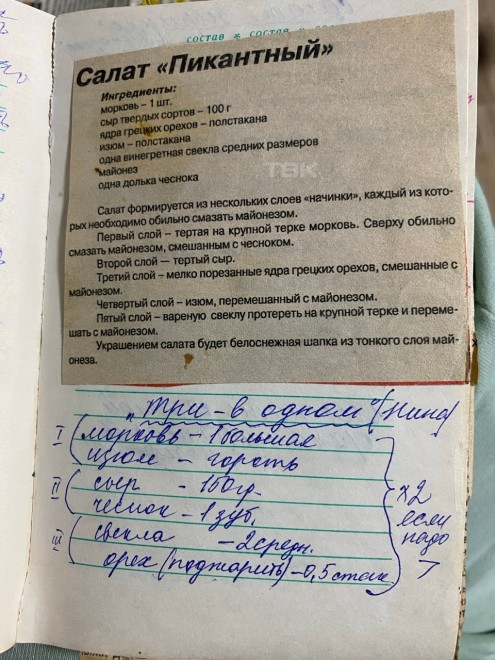 состав * состав
Салат «Пикантный»
Ингредиенты:
морковь – 1 шт.
сыр твердых сортов – 100 г
ядра грецких орехов – полстакана
изюм – полстакана
одна винегретная свекла средних размеров
майонез
одна долька чеснока
ТВК
Салат формируется из нескольких слоев «начинки», каждый из кото-
рых необходимо обильно смазать майонезом.
Первый слой – тертая на крупной терке морковь. Сверху обильно
смазать майонезом, смешанным с чесноком.
Второй слой — тертый сыр.
Третий слой – мелко порезанные ядра грецких орехов, смешанные с
майонезом.
Четвертый слой – изюм, перемешанный с майонезом.
Пятый слой – вареную свеклу протереть на крупной терке и переме-
шать с майонезом.
Украшением салата будет белоснежная шапка из тонкого слоя май-
онеза.
„Три – в одном" (Нина)
I морковь – 1 большая
изюм – горсть
II сыр – 150 гр.
чеснок – 1 зуб.
III свекла – 2 средн.
орех (поджарить) – 0,5 стак
x2
если
надо